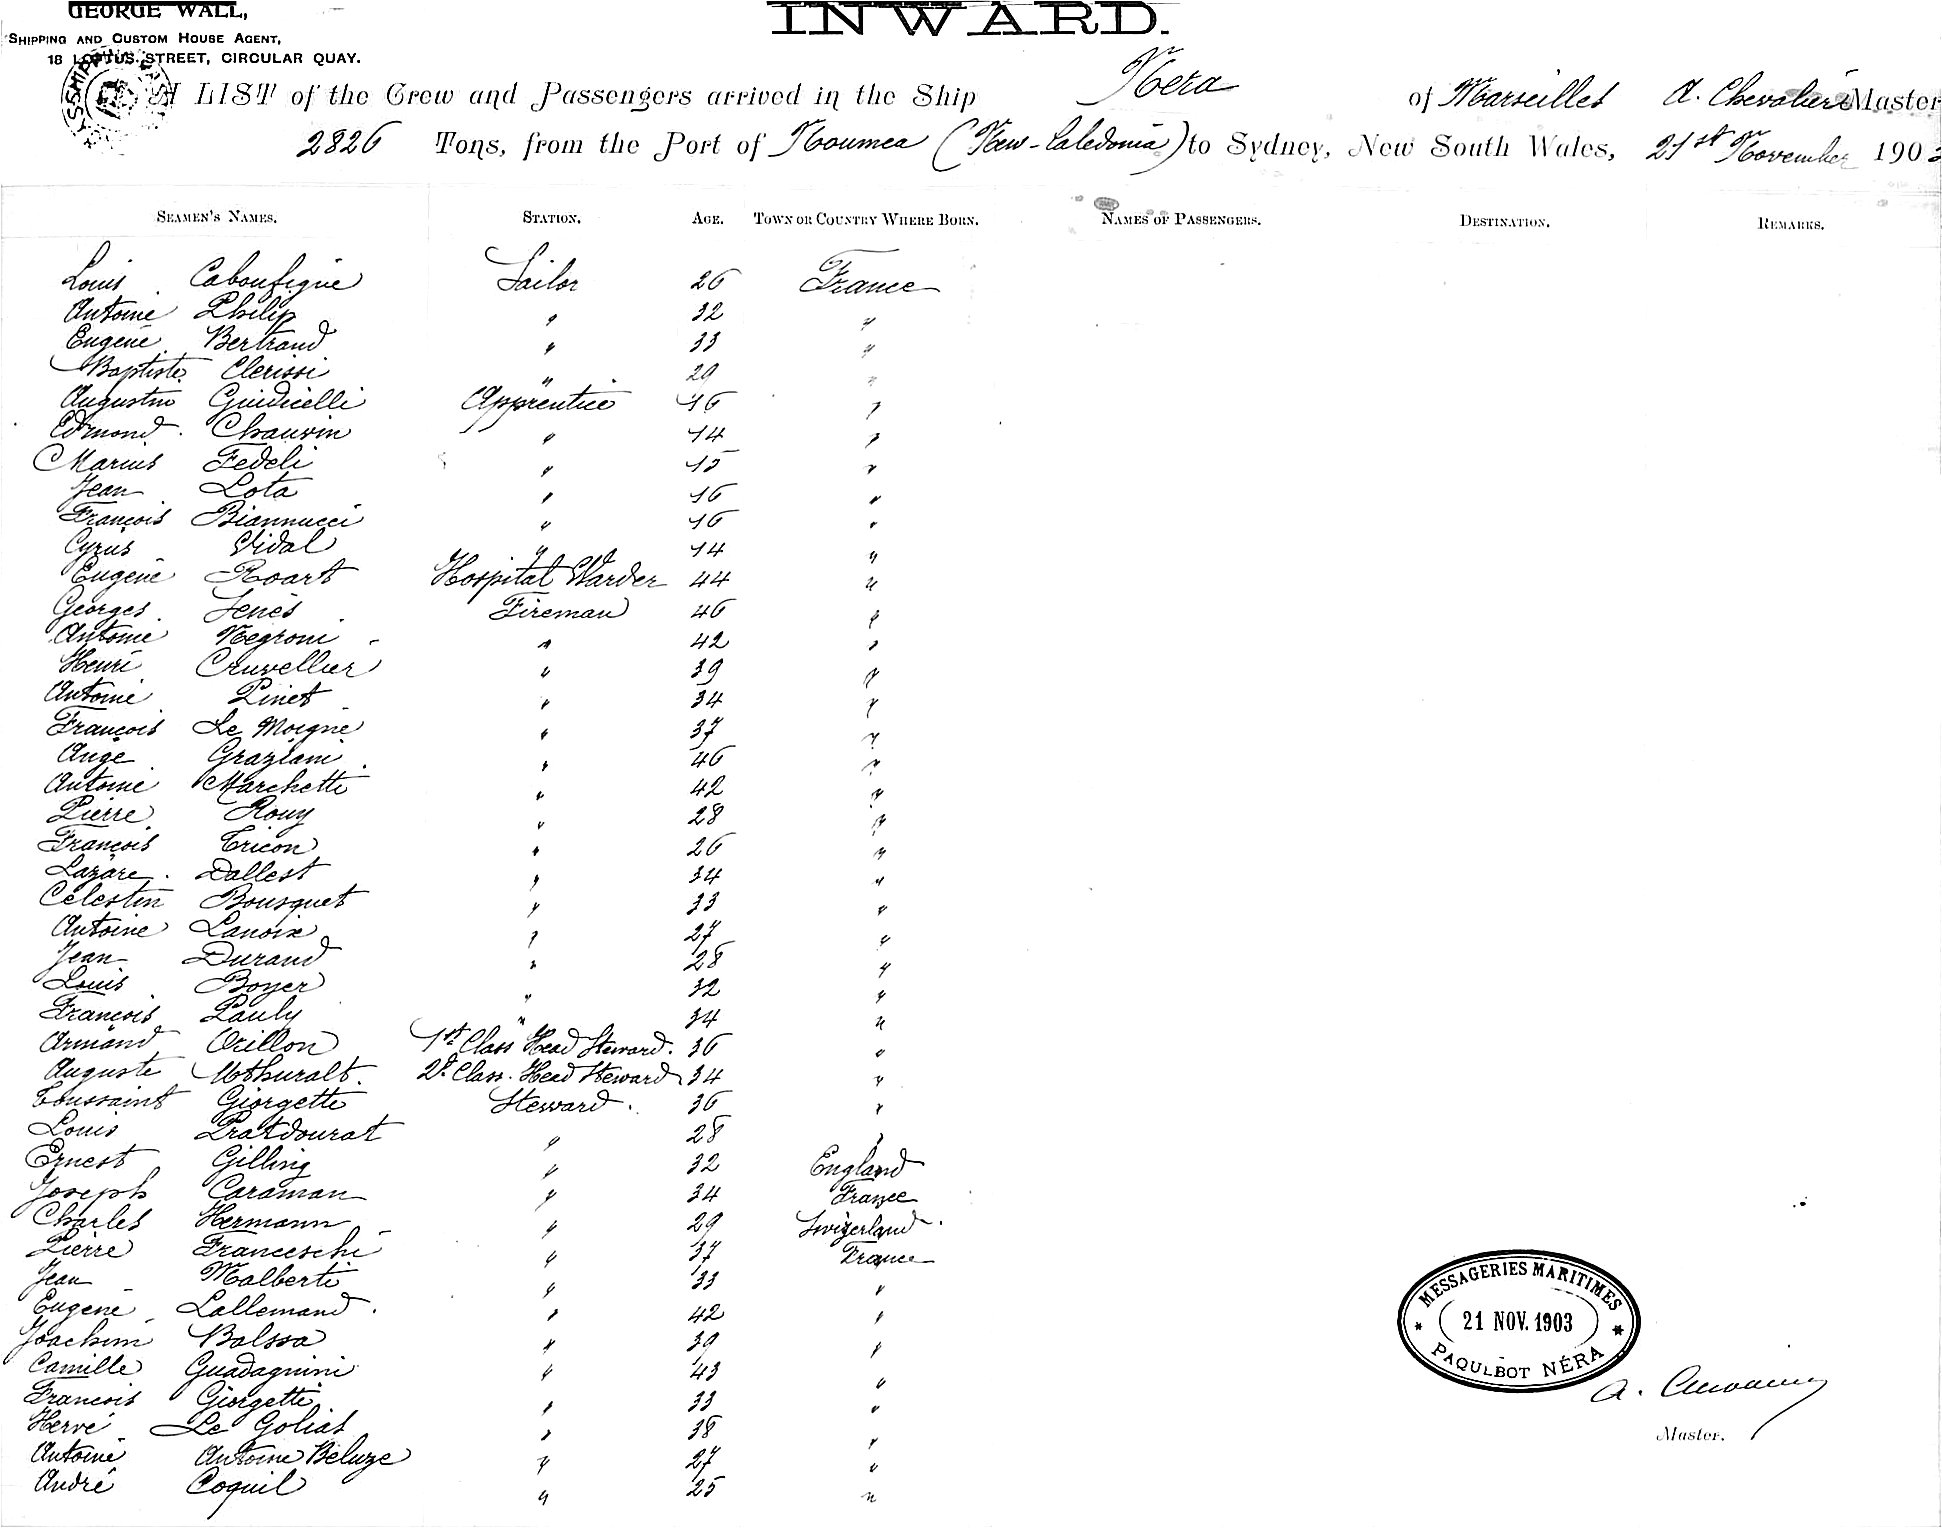 GEORGE WALL,
SHIPPING AND CUSTOM HOUSE AGENT,
18 LOFTUS STREET, CIRCULAR QUAY.
INWARD.
A LIST of the Crew and Passengers arrived in the Ship Nera of Marseilles A. Chevalier Master
2826 Tons, from the Port of Noumea (New-Caledonia) to Sydney, New South Wales, 21st November 1903
SEAMEN'S NAMES. STATION. AGE. TOWN OR COUNTRY WHERE BORN. NAMES OF PASSENGERS. DESTINATION. REMARKS.
Louis Caboufigue Sailor 26 France
Antoine Philip " 32 "
Eugène Bertrand " 33 "
Baptiste Clerissi " 29 "
Augustin Guidicelli Apprentice 16 "
Edmond Chauvin " 14 "
Marius Fedeli " 15 "
Jean Lota " 16 "
François Biannucci " 16 "
Cyrus Vidal " 14 "
Eugène Roart Hospital Warder 44 "
Georges Jenès Fireman 46 "
Antoine Negroni " 42 "
Henri Cruvellier " 39 "
Antoine Pinet " 34 "
François Le Moigne " 37 "
Ange Graziani " 46 "
Antoine Marchetti " 42 "
Pierre Rouy " 28 "
François Tricon " 26 "
Lazare Dallest " 34 "
Célestin Bousquet " 33 "
Antoine Lanoix " 27 "
Jean Durand " 28 "
Louis Boyer " 32 "
François Pauly " 34 "
Armand Orillon 1st Class Head Steward. 36 "
Auguste 2d Class. Head Steward 34 "
Toussaint Giorgetti Steward. 36 "
Louis Pratdourat " 28 "
Ernest Gilling " 32 England
Joseph Caraman " 34 France
Charles Hermann " 29 Swizerland
Pierre Franceschi " 37 France
Jean Malberti " 33 "
Eugène Lallemand " 42 "
Joachim Balssa " 39 "
Camille Guadagnini " 43 "
François Giorgetti " 33 "
Hervé Le Goliat " 38 "
Antoine Antoine Beluze " 27 "
André Coquil " 25 "
MESSAGERIES MARITIMES
21 NOV. 1903
PAQUEBOT NÉRA
A. Chevalier
Master.